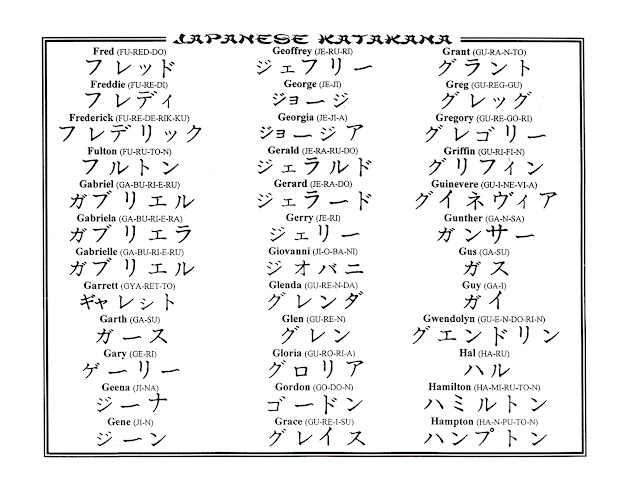 JAPANESE KATAKANA
Fred (FU-RED-DO)
フレッド
Freddie (FU-RE-DI)
フレディ
Frederick (FU-RE-DE-RIK-KU)
フレデリック
Fulton (FU-RU-TO-N)
フルトン
Gabriel (GA-BU-RI-E-RU)
ガブリエル
Gabriela (GA-BU-RI-E-RA)
ガブリエラ
Gabrielle (GA-BU-RI-E-RU)
ガブリエル
Garrett (GYA-RET-TO)
ギャレット
Garth (GA-SU)
ガース
Gary (GE-RI)
ゲーリー
Geena (JI-NA)
ジーナ
Gene (JI-N)
ジーン
Geoffrey (JE-RU-RI)
ジェフリー
George (JE-JI)
ジョージ
Georgia (JE-JI-A)
ジョージア
Gerald (JE-RA-RU-DO)
ジェラルド
Gerard (JE-RA-DO)
ジェラード
Gerry (JE-RI)
ジェリー
Giovanni (JI-O-BA-NI)
ジオバニ
Glenda (GU-RE-N-DA)
グレンダ
Glen (GU-RE-N)
グレン
Gloria (GU-RO-RI-A)
グロリア
Gordon (GO-DO-N)
ゴードン
Grace (GU-RE-I-SU)
グレイス
Grant (GU-RA-N-TO)
グラント
Greg (GU-REG-GU)
グレッグ
Gregory (GU-RE-GO-RI)
グレゴリー
Griffin (GU-RI-FI-N)
グリフィン
Guinevere (GU-I-NE-VI-A)
グイネヴィア
Gunther (GA-N-SA)
ガンサー
Gus (GA-SU)
ガス
Guy (GA-I)
ガイ
Gwendolyn (GU-E-N-DO-RI-N)
グエンドリン
Hal (HA-RU)
ハル
Hamilton (HA-MI-RU-TO-N)
ハミルトン
Hampton (HA-N-PU-TO-N)
ハンプトン